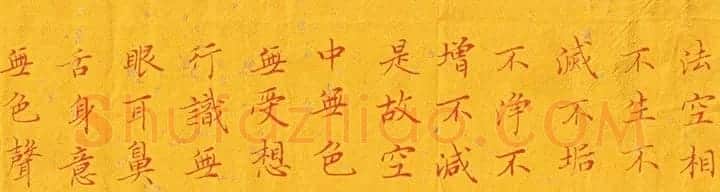 法空相
不生不
滅不垢
不淨不
增不減
是故空
中無色
無受想
行識無
眼耳鼻
舌身意
無色聲
Shufaziliao.COM